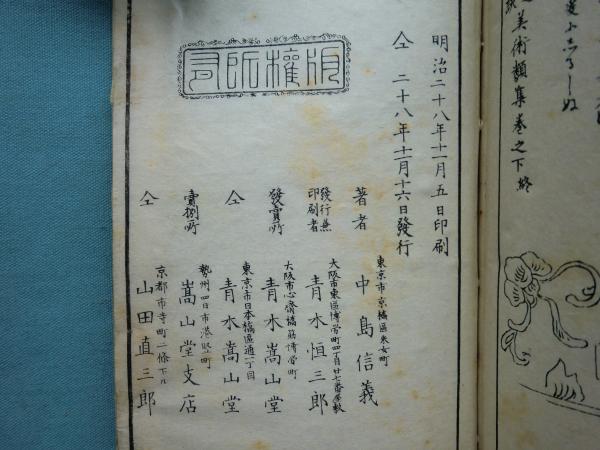 是ぶ
美術類集巻之下終
明治二十八年十一月五日印刷
仝二十八年十一月十六日發行
版權所有
著者
東京市京橋區采女町
中島信義
發行兼
印刷者
大阪市東區博労町四丁目廿七番屋敷
青木恒三郎
發賣所
大阪市心齋橋筋博労町
青木嵩山堂
仝
東京市日本橋區通一丁目
青木嵩山堂
賣捌所
勢州四日市港竪町
嵩山堂支店
仝
京都市寺町二條下ル
山田直三郎